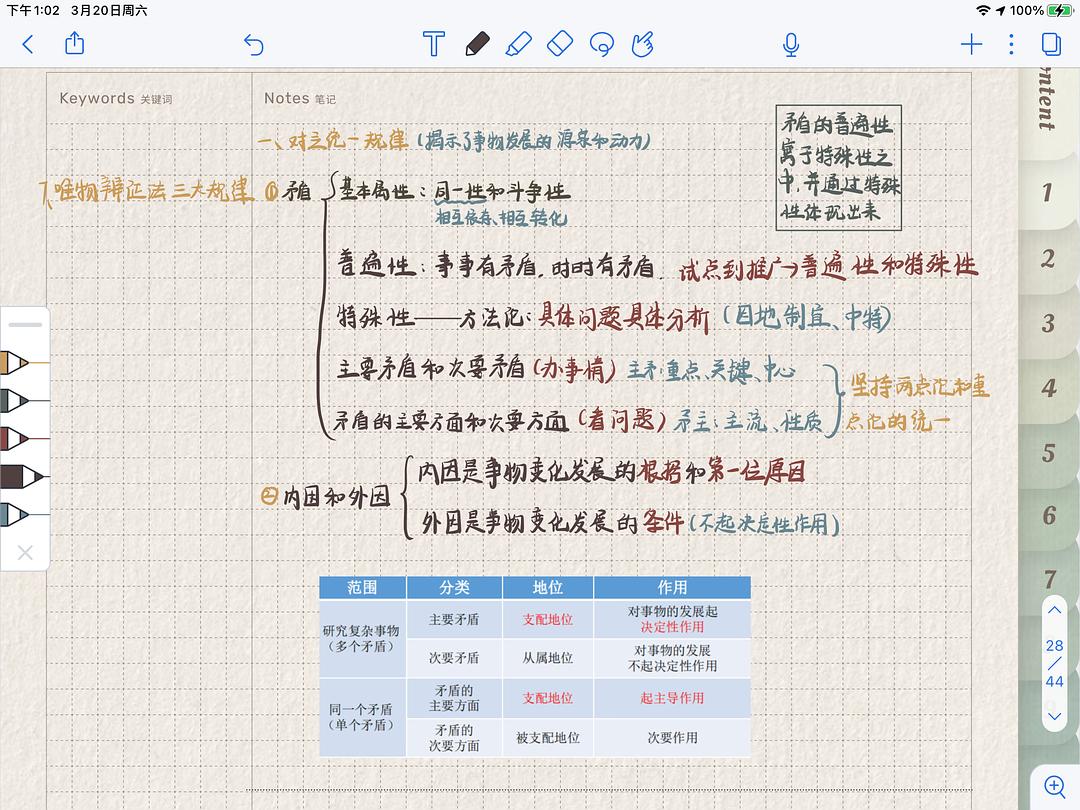 下午1:02 3月20日周六
100%
Keywords 关键词
Notes 笔记
ntent
一、对立统一规律(揭示了事物发展的源泉和动力)
矛盾的普遍性
寓于特殊性之
中,并通过特殊
性体现出来
7、唯物辩证法三大规律
①矛盾
基本属性:同一性和斗争性
相互依存、相互转化
普遍性:事事有矛盾,时时有矛盾. 试点到推广→普遍性和特殊性
特殊性——方法论:具体问题具体分析(因地制宜、中特)
主要矛盾和次要矛盾(办事情)主矛:重点、关键、中心
矛盾的主要方面和次要方面(看问题)矛主:主流、性质
坚持两点论和重
点论的统一
②内因和外因
内因是事物变化发展的根据和第一位原因
外因是事物变化发展的条件(不起决定性作用)
范围 分类 地位 作用
研究复杂事物
(多个矛盾)
主要矛盾 支配地位 对事物的发展起
决定性作用
次要矛盾 从属地位 对事物的发展
不起决定性作用
同一个矛盾
(单个矛盾)
矛盾的
主要方面
支配地位 起主导作用
矛盾的
次要方面
被支配地位 次要作用
1
2
3
4
5
6
7
28
44